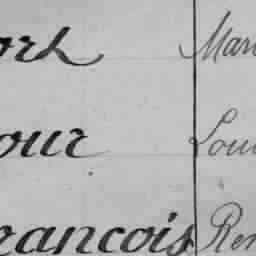 orh Mari
our Loui
rancois Ren